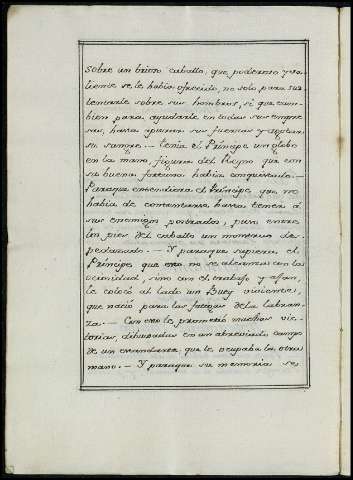 sobre un brioso caballo, que poderoso y va-
liente se le habia ofrecido, no solo para sus
tentarle sobre sus hombros, si que tam-
bien para ayudarle en todas sus empre
sas, hasta apurar sus fuerzas y agotar
su sangre.— Tenia el Príncipe un globo
en la mano, figura del Reyno que con
su buena fortuna habia conquistado.—
Paraque entendiera el Príncipe, que no
habia de contentarse hasta tener á
sus enemigos postrados, puso entre
los pies del caballo un monstruo des-
pedazado.— Y paraque supiera el
Príncipe que esto no se alcanza con la
ociosidad, sino con el trabajo y afan,
le colocó al lado un Buey viviente,
que nació para las fatigas de la labran-
za.— Con esto le prometió muchas vic-
torias, dibuxadas en un abreviado campo
de un estandarte, que le ocupaba la otra
mano.— Y paraque su memoria se